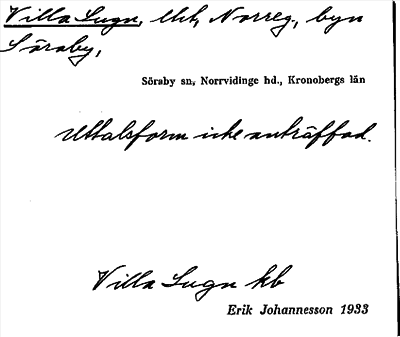 Villa Lugn, lht, Norreg, byn
Söraby,
Söraby sn, Norrvidinge hd., Kronobergs län
Uttalsform icke anträffad.
Villa Lugn kb
Erik Johannesson 1933